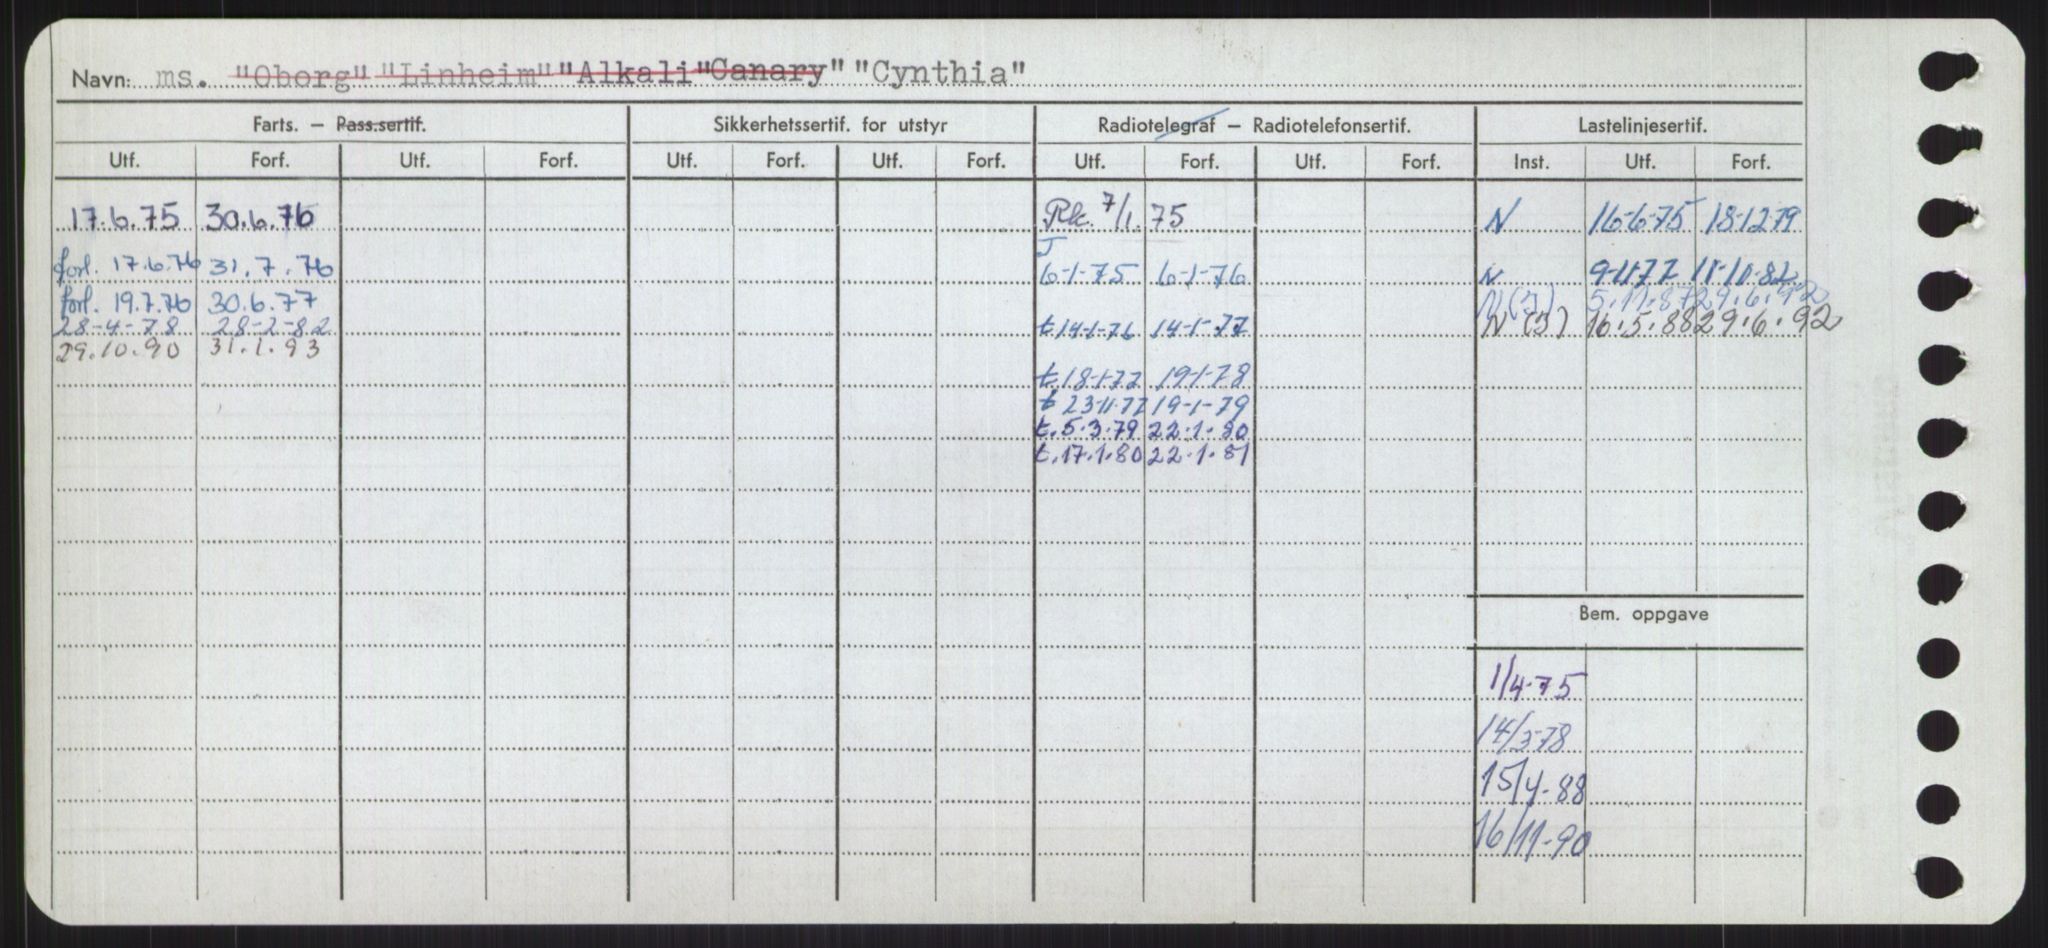 Navn: ms. "Oborg" "Linheim" "Alkali" "Canary" "Cynthia"
Farts. — Pass.sertif. Sikkerhetssertif. for utstyr Radiotelegraf — Radiotelefonsertif. Lastelinjesertif.
Utf. Forf. Utf. Forf. Utf. Forf. Utf. Forf. Utf. Forf. Utf. Forf. Inst. Utf. Forf.
17.6.75 30.6.76 Rk. 7/1.75 N 16-6-75 18-12-79
J
forl. 17.6.76 31.7.76 6-1-75 6-1-76 N 9-11-77 11-10-82
forl. 19.7.76 30.6.77 N(J) 5.11.87 29.6.92
28-4-78 28-2-82 t 14-1-76 14-1-77 N (J) 16.5.88 29.6.92
29.10.90 31.1.93
t. 18-1-77 19-1-78
t 23-11-77 19-1-79
t. 5.3.79 22.1.80
t. 17.1.80 22.1.81
Bem. oppgave
1/4-75
14/3-78
15/4-88
16/11-90